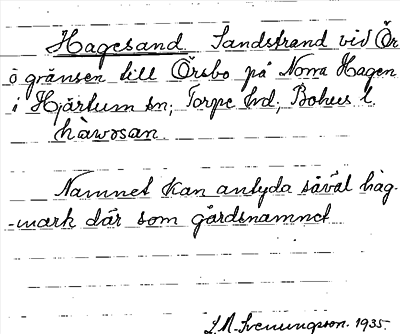 Hagesand Sandstrand vid Ör
ö gränsen till Örsbo på Norra Hagen
i Hjärtum sn, Torpe hd, Bohus l.
håwosan
Namnet kan antyda såväl hag-
-mark där som gårdsnamnet
1935.